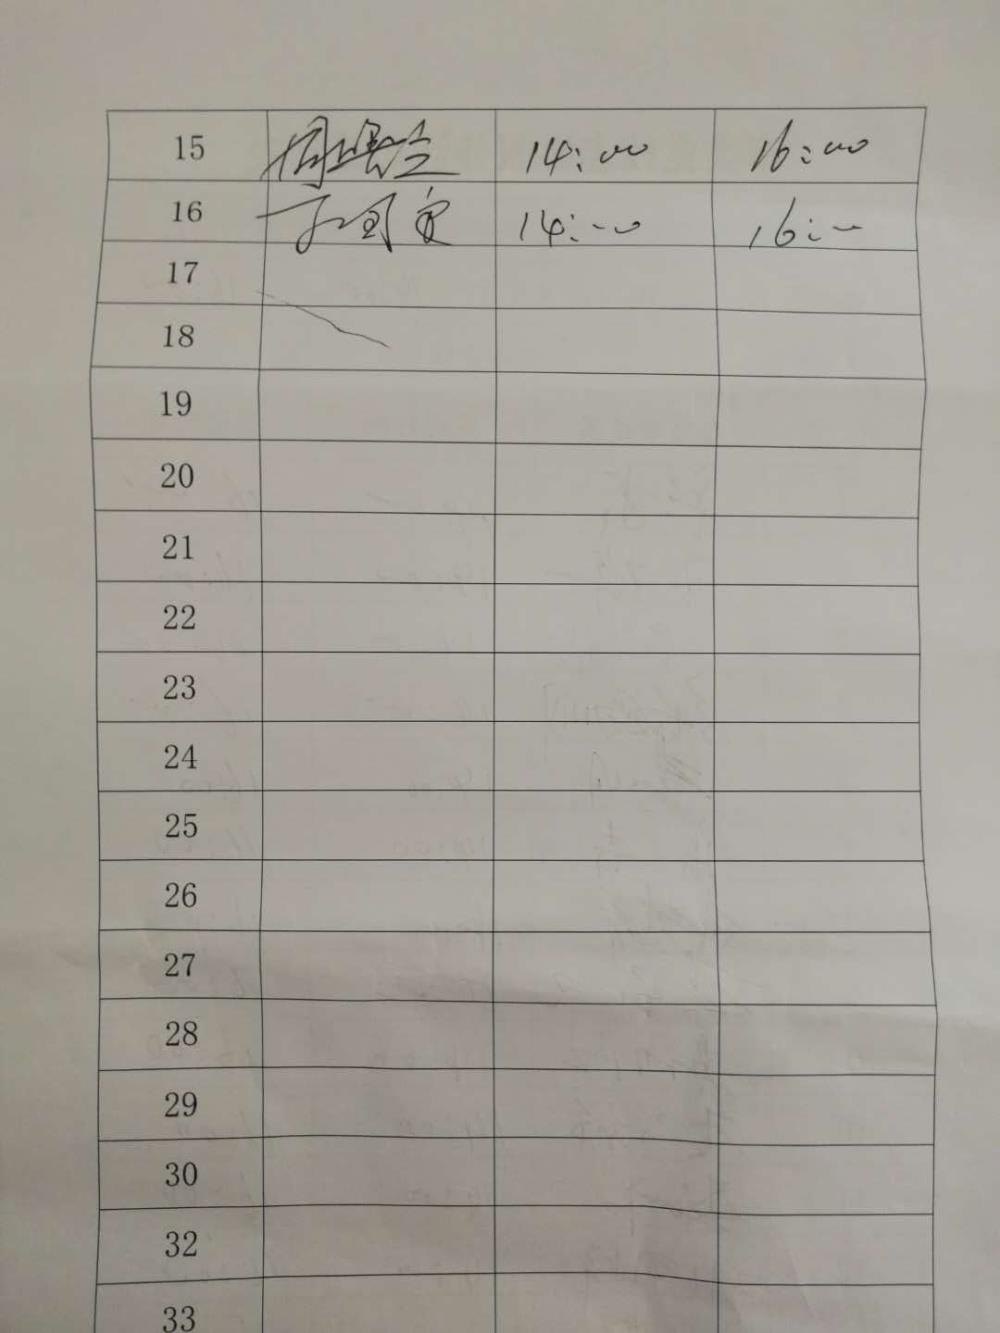 15 14:00 16:00
16 14:00 16:00
17
18
19
20
21
22
23
24
25
26
27
28
29
30
32
33